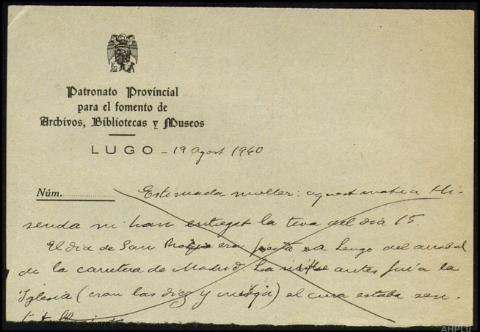 Patronato Provincial
para el fomento de
Archivos, Bibliotecas y Museos
LUGO - 19 agost 1960
Núm. Estimada muller: aquest matí a Hi-
senda m'han entregat la teva del dia 15
El día de San Roque era a lo largo del
de la carretera de Madrid. La antes fui a la
Iglesia (eran las diez y media) el cura estaba sen-
AHPLU